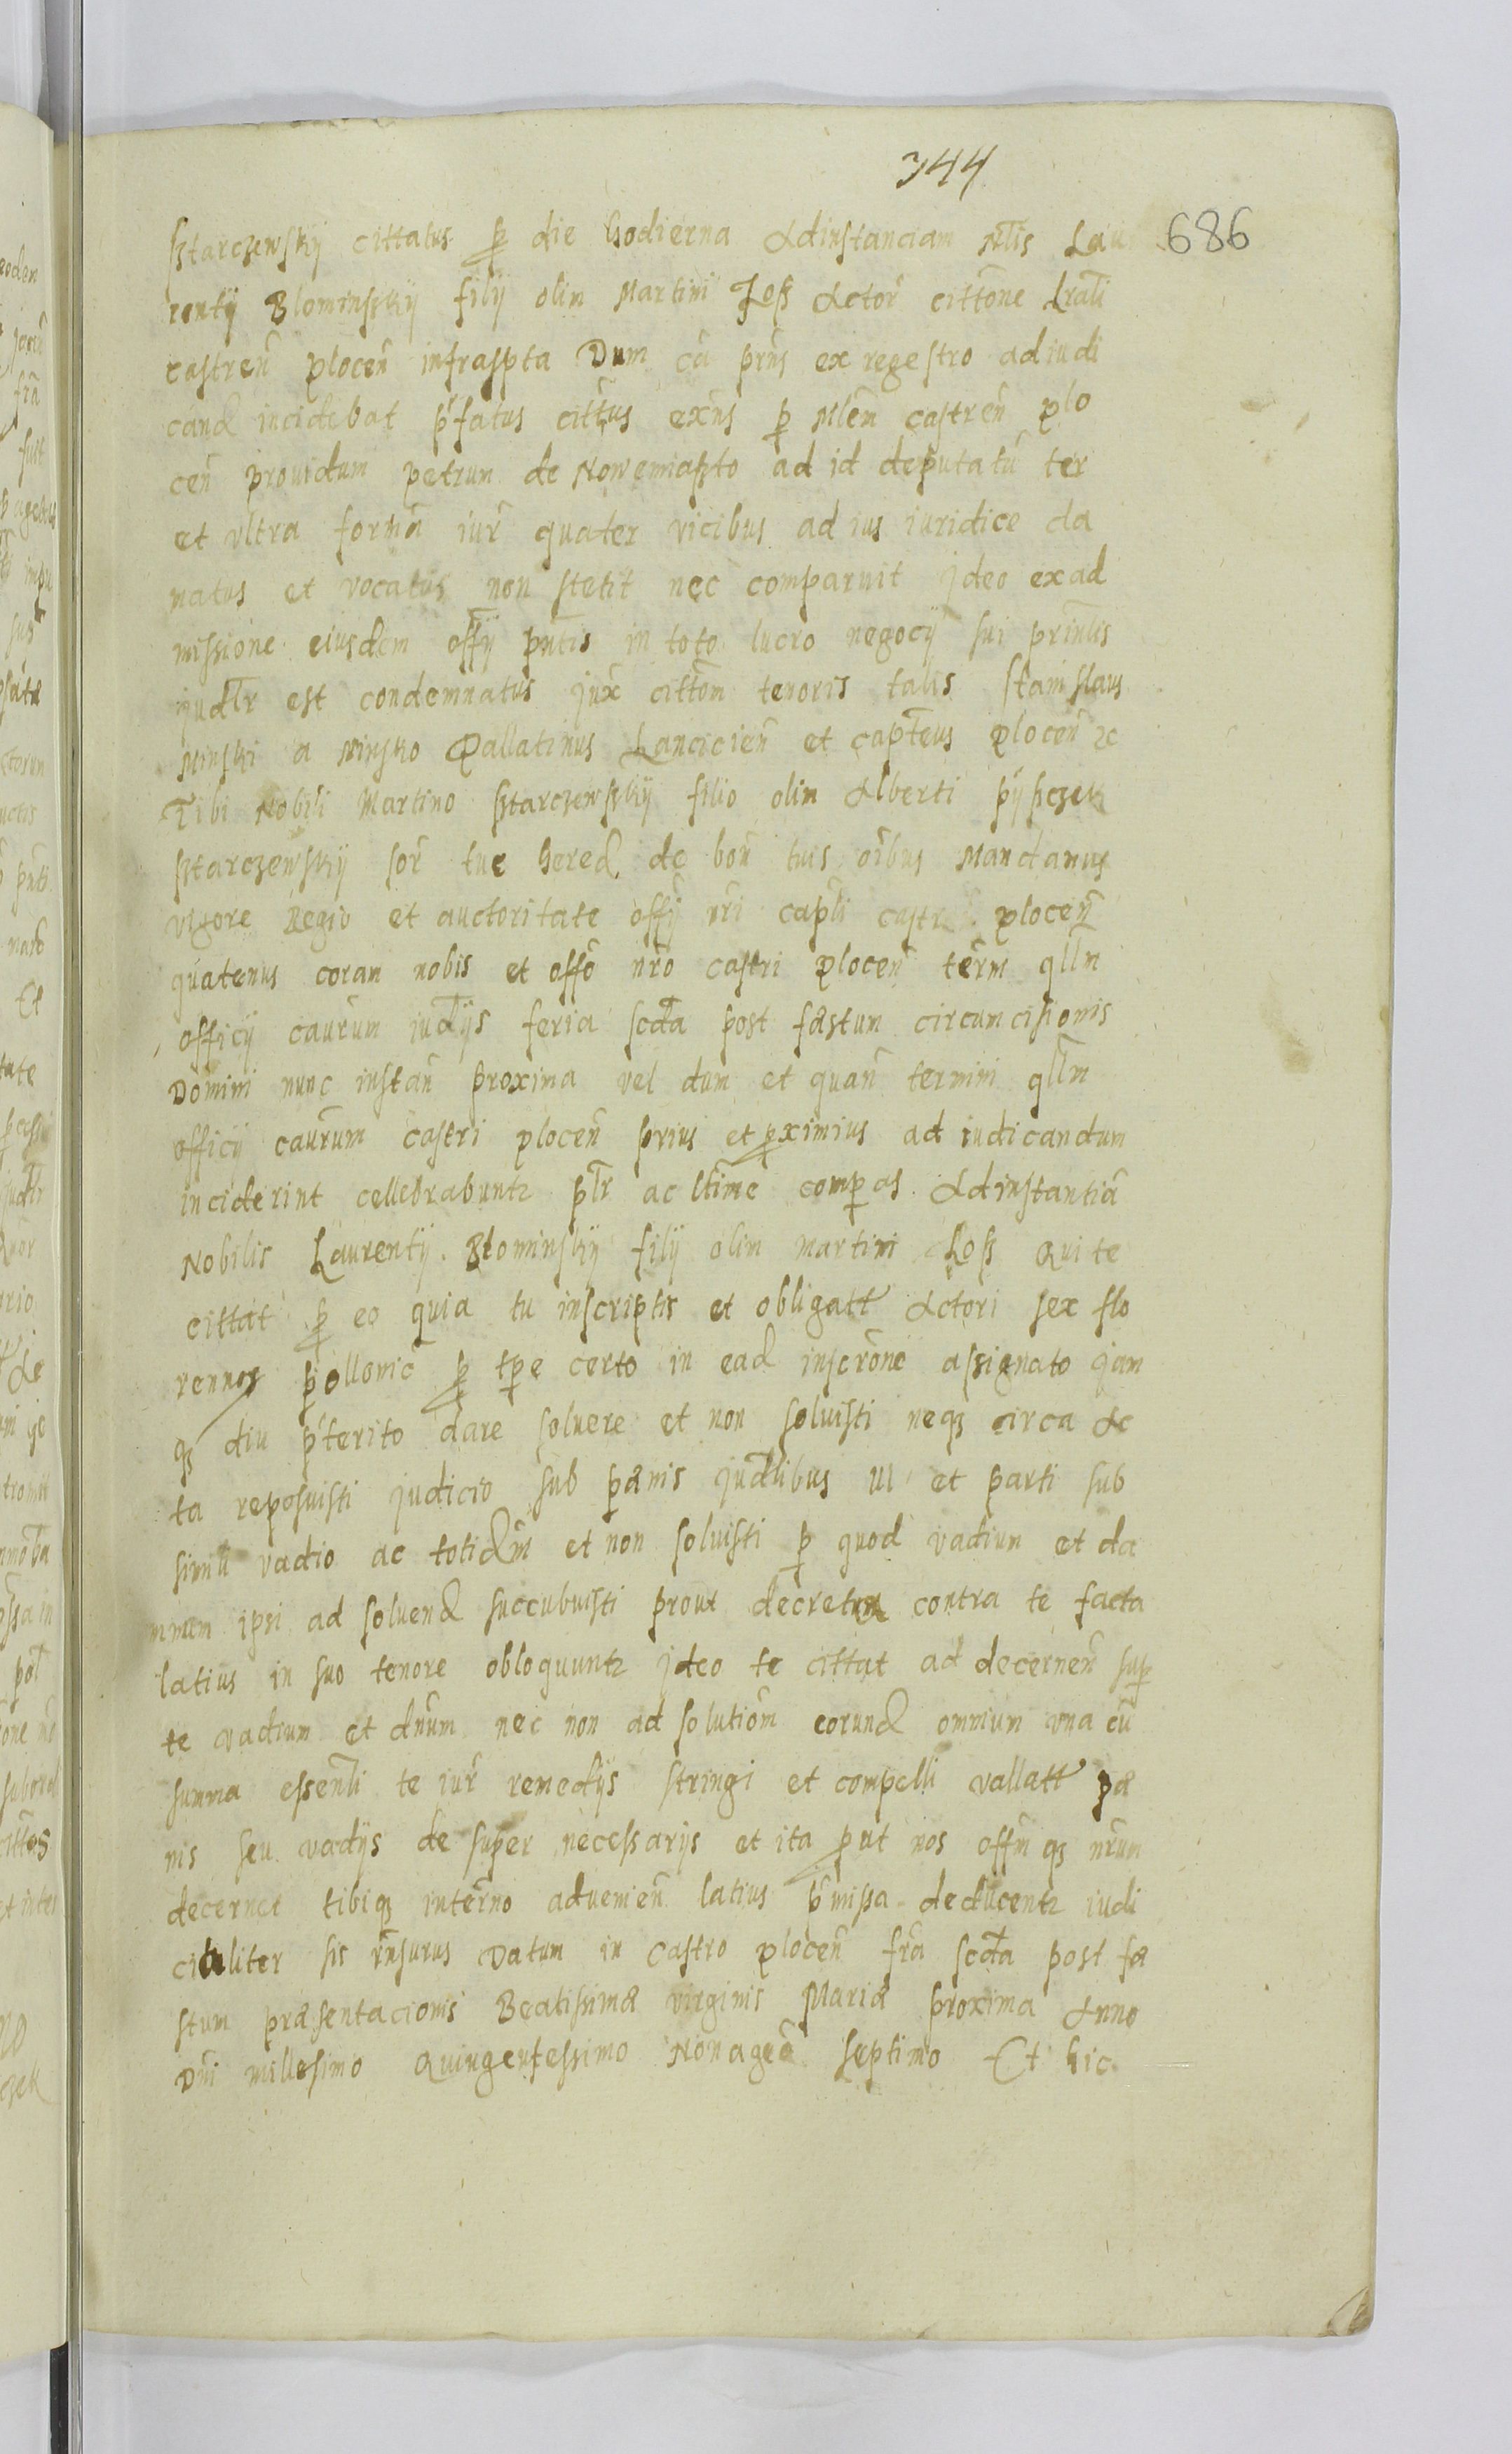 344
686
Sztarczewskij cittatus p die hodierna Adinstanciam Nlis Lau
rentij Blominsskij filij olim Martini Less Actor cittone Lrali
castren plocen infraspta Dum ca prns ex regestro adiudi
cand incidebat pfatus cittus exns p Mlem castren plo
cen prouidum petrum de Nowemiaszto ad id deputatu ter
et vltra forma iur quater vicibus ad ius iuridice da
matus et vocatus non stetit nec comparuit jdeo ex ad
missione eiusdem offij pntis in toto lucro negocij sui prinlis
judlr est condemnatus jux cittom tenoris talis Stanislaus
Minski a Minsko Pallatinus Lancicien et capteus plocen zc
Tibi Nobili Martino Sztarczewsskij filio olim Alberti pijsczek
Sztarczewskij sor tue hered de bon tuis oibus Mandamus
vigore Regio et auctoritate offij nri capli castr plocen
quatenus coram nobis et offo nro castri plocen term qllm
officij caurum iudijs feria scda post fæstum circumcisionis
Domini nunc instan proxima vel dum et quan termini qllm
officij caurum castri plocen prius et pximius ad iudicandum
inciderint cellebrabuntz plr ac ltime compas Adinstantia
Nobilis Laurentij Blominskij filij olim martini Less qui te
cittat p eo quia tu inscriptis et obligatt Actori sex flo
rennos pollonic p tpe certo in ead inscrone assignato jam
qz diu pterito dare soluere et non soluisti neqz circa Ac
ta reposuisti judicio sub pænis judlibus ul et parti sub
simili vadio ac totidm et non soluisti p quod vadium et da
mnum ipsi ad soluend succubuisti prout decreta contra te facta
latius in suo tenore obloquuntz jdeo te cittat ad decernen sup
te vadium et dnum nec non ad solutiom eorund omnium vna cu
summa essenli te iur remedijs stringi et compelli vallatt pæ
nis seu vadijs de super necessarijs et ita put nos offm qz nrum
decernet tibiqz interno aduenien latius pmissa deducentz iudi
cialiter sis rnsurus Datum in Castro plocen fra scda post fæ
stum præsentacionis Beatissimæ virginis Mariæ proxima Anno
Dni millesimo Quingentessimo Nonageo septimo Et hic